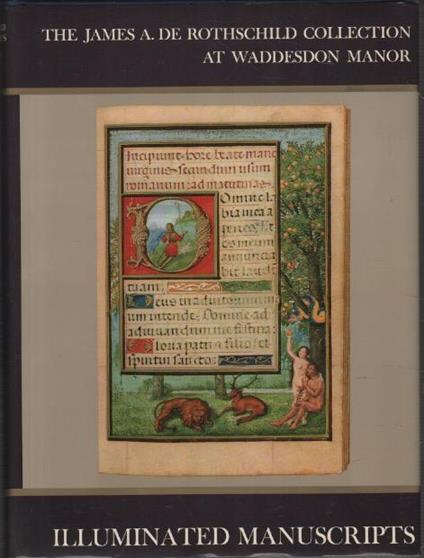 THE JAMES A. DE ROTHSCHILD COLLECTION
AT WADDESDON MANOR
Incipiunt hore beate marie
virginis secundum usum
romanum: ad matutinas
Domine la
bia mea a
peries et
os meum
annuncia
bit laude
tuam:
Deus in adiutorium me
um intende: Domine ad
adiuvandum me festina:
Gloria patri et filio: et
spiritui sancto:
ILLUMINATED MANUSCRIPTS